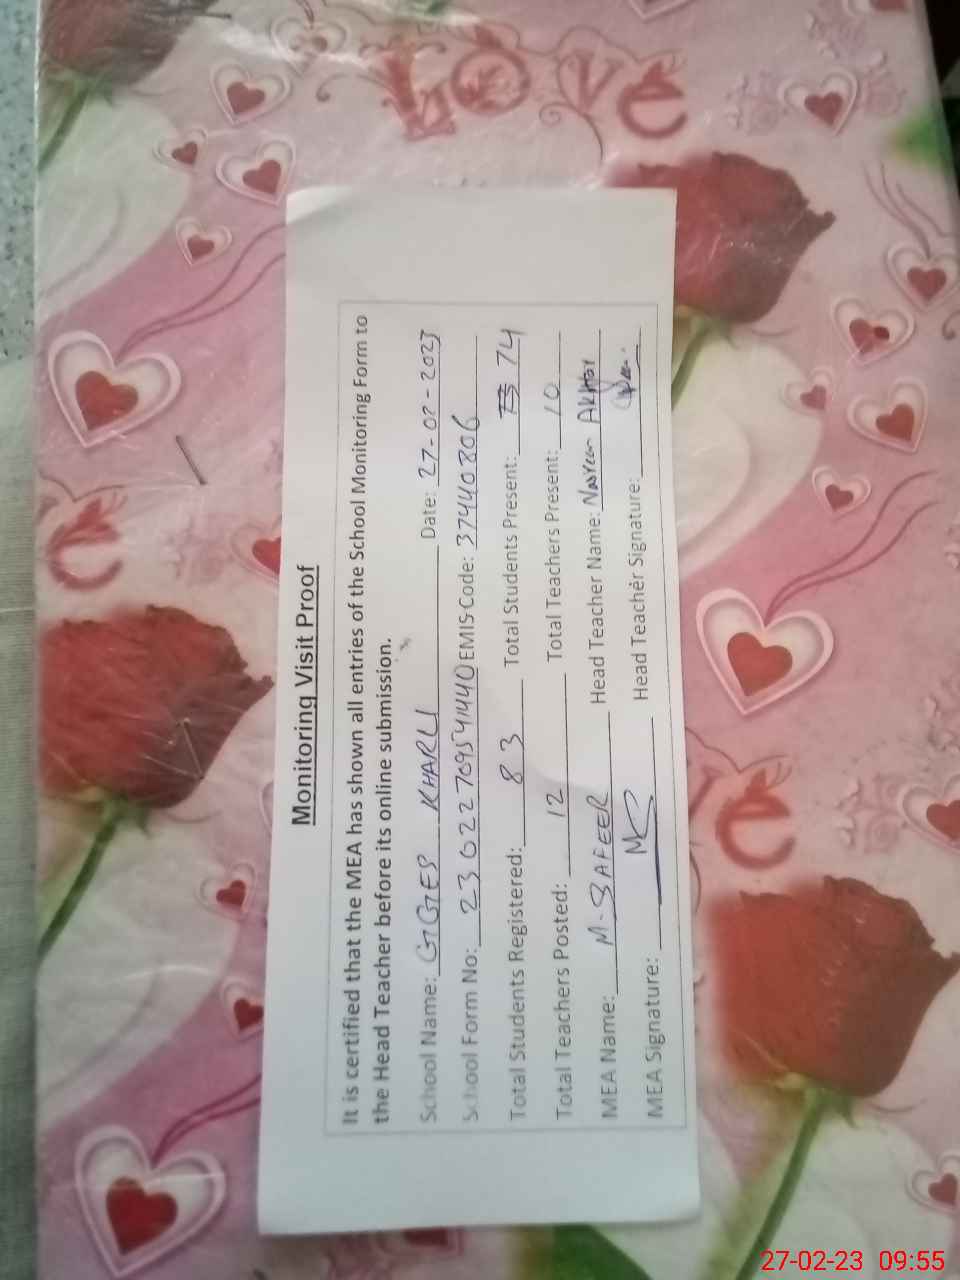 Love
Monitoring Visit Proof
It is certified that the MEA has shown all entries of the School Monitoring Form to
the Head Teacher before its online submission.
School Name: GGES KHARLI Date: 27-02-2023
School Form No: 23022709541440 EMIS Code: 37440806
Total Students Registered: 83 Total Students Present: 74
Total Teachers Posted: 12 Total Teachers Present: 10
MEA Name: M. SAFEER Head Teacher Name: Nasreen Akhtar
MEA Signature: Head Teacher Signature:
27-02-23 09:55